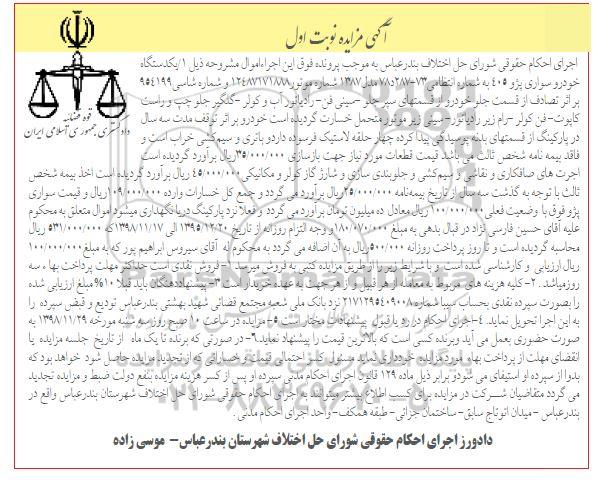 آگهی مزایده نوبت اول
قوه قضائیه
دادگستری جمهوری اسلامی ایران
اجرای احکام حقوقی شورای حل اختلاف بندرعباس به موجب پرونده فوق این اجراءاموال مشروحه ذیل ۱/یکدستگاه
خودرو سواری پژو ۴۰۵ به شماره انتظامی۷۳-۲۸۷د۷۸ مدل۱۳۸۷ شماره موتور۱۲۴۸۷۱۷۱۸۸۸ و شماره شاسی۹۵۴۱۹۹
بر اثر تصادف از قسمت جلو خودرو از قسمتهای سپر جلو -سینی فن- رادیاتور آب و کولر -گلگیر جلو چپ و راست
کاپوت- فن کولر -رام زیر رادیاتور- سینی زیر موتور متحمل خسارت گردیده است خودرو بر اثر توقف مدت سه سال
در پارکینگ از قسمتهای بدنه پوسیدگی پیدا کرده چهار حلقه لاستیک فرسوده داردو باتری و سیم کشی خراب است و
فاقد بیمه نامه شخص ثالث می باشد قیمت قطعات مورد نیاز جهت بازسازی ۳۵/۰۰۰/۰۰۰ریال برآورد گردیده است
اجرت های صافکاری و نقاشی و سیم کشی و جلوبندی سازی و شارژ گاز کولر و مکانیکی۴۵/۰۰۰/۰۰۰ ریال برآورد گردیده است اخذ بیمه شخص
ثالث با توجه به گذشت سه سال از تاریخ بیمه‌نامه ۲۵/۰۰۰/۰۰۰ریال برآورد می گردد و جمع کل خسارات وارده ۱۰۹/۰۰۰/۰۰۰ریال و قیمت سواری
پژو فوق با وضعیت فعلی ۱۰۰/۰۰۰/۰۰۰ ریال معادل ده میلیون تومان برآورد می گردد و فعلا نزد پارکینگ دریا نگهداری میشود اموال متعلق به محکوم
علیه آقای حسین فارسی نژاد در قبال بدهی به مبلغ ۱۸۰/۰۷۰/۰۰۰و وجه التزام روزانه از تاریخ ۱۳۹۵/۱۲/۲۰ الی ۱۳۹۸/۱۱/۱۷که ۵۳۱/۰۰۰/۰۰۰ ریال
محاسبه گردیده است و تا روز پرداخت روزانه ۵۰۰/۰۰۰ریال به آن اضافه می گردد به محکوم له آقای سیروس ابراهیم پور که به مبلغ ۱۰۰/۰۰۰/۰۰۰
ریال ارزیابی و کارشناسی شده است و با شرایط زیر را از طریق مزایده کتبی به فروش میرسد ۱- فروش نقدی است حداکثر مهلت پرداخت بها ، سه
روزمیباشد . ۲-کلیه هزینه های مربوط به معامله از هر قبیل و از هر جهت به عهده خریدار است ۳- پیشنهاددهندگان باید قبلا ۱۰% مبلغ ارزیابی شده
را بصورت سپرده نقدی بحساب سیبا شماره ۲۱۷۱۲۹۵۴۰۹۰۰۸ نزد بانک ملی شعبه مجتمع قضائی شهید بهشتی بندرعباس تودیع و قبض سپرده را
به این اجرا تحویل نماید. ۴-اجرای احکام در رد یا قبول پیشنهادات مختار است ۵- مزایده در ساعت ۱۰ صبح روز سه شنبه مورخه ۱۳۹۸/۱۱/۲۹ به
صورت حضوری بعمل می آید وبرنده کسی است که بالاترین قیمت را پیشنهاد نماید.۶- در صورتی که برنده تا یک ماه از تاریخ جلسه مزایده یا
انقضای مهلت از پرداخت بهاء مورد مزایده خودداری نماید مسئول کسر احتمالی قیمت و خساراتی که از تجدید مزایده حاصل شود خواهد بود که
بدوا از سپرده او استیفای می شود و برابر ذیل ماده ۱۲۹ قانون اجرای احکام مدنی سپرده او پس از کسر هزینه مزایده بنفع دولت ضبط و مزایده تجدید
می گردد متقاضیان شـــرکت در مزایده برای کسب اطلاع بیشتر میتوانند به اجرای احکام حقوقی شورای حل اختلاف شهرستان بندرعباس واقع در
بندرعباس -میدان اتوتاج سابق-ساختمان جزائی-طبقه همکف- واحد اجرای احکام مدنی.
دادورز اجرای احکام حقوقی شورای حل اختلاف شهرستان بندرعباس- موسی زاده